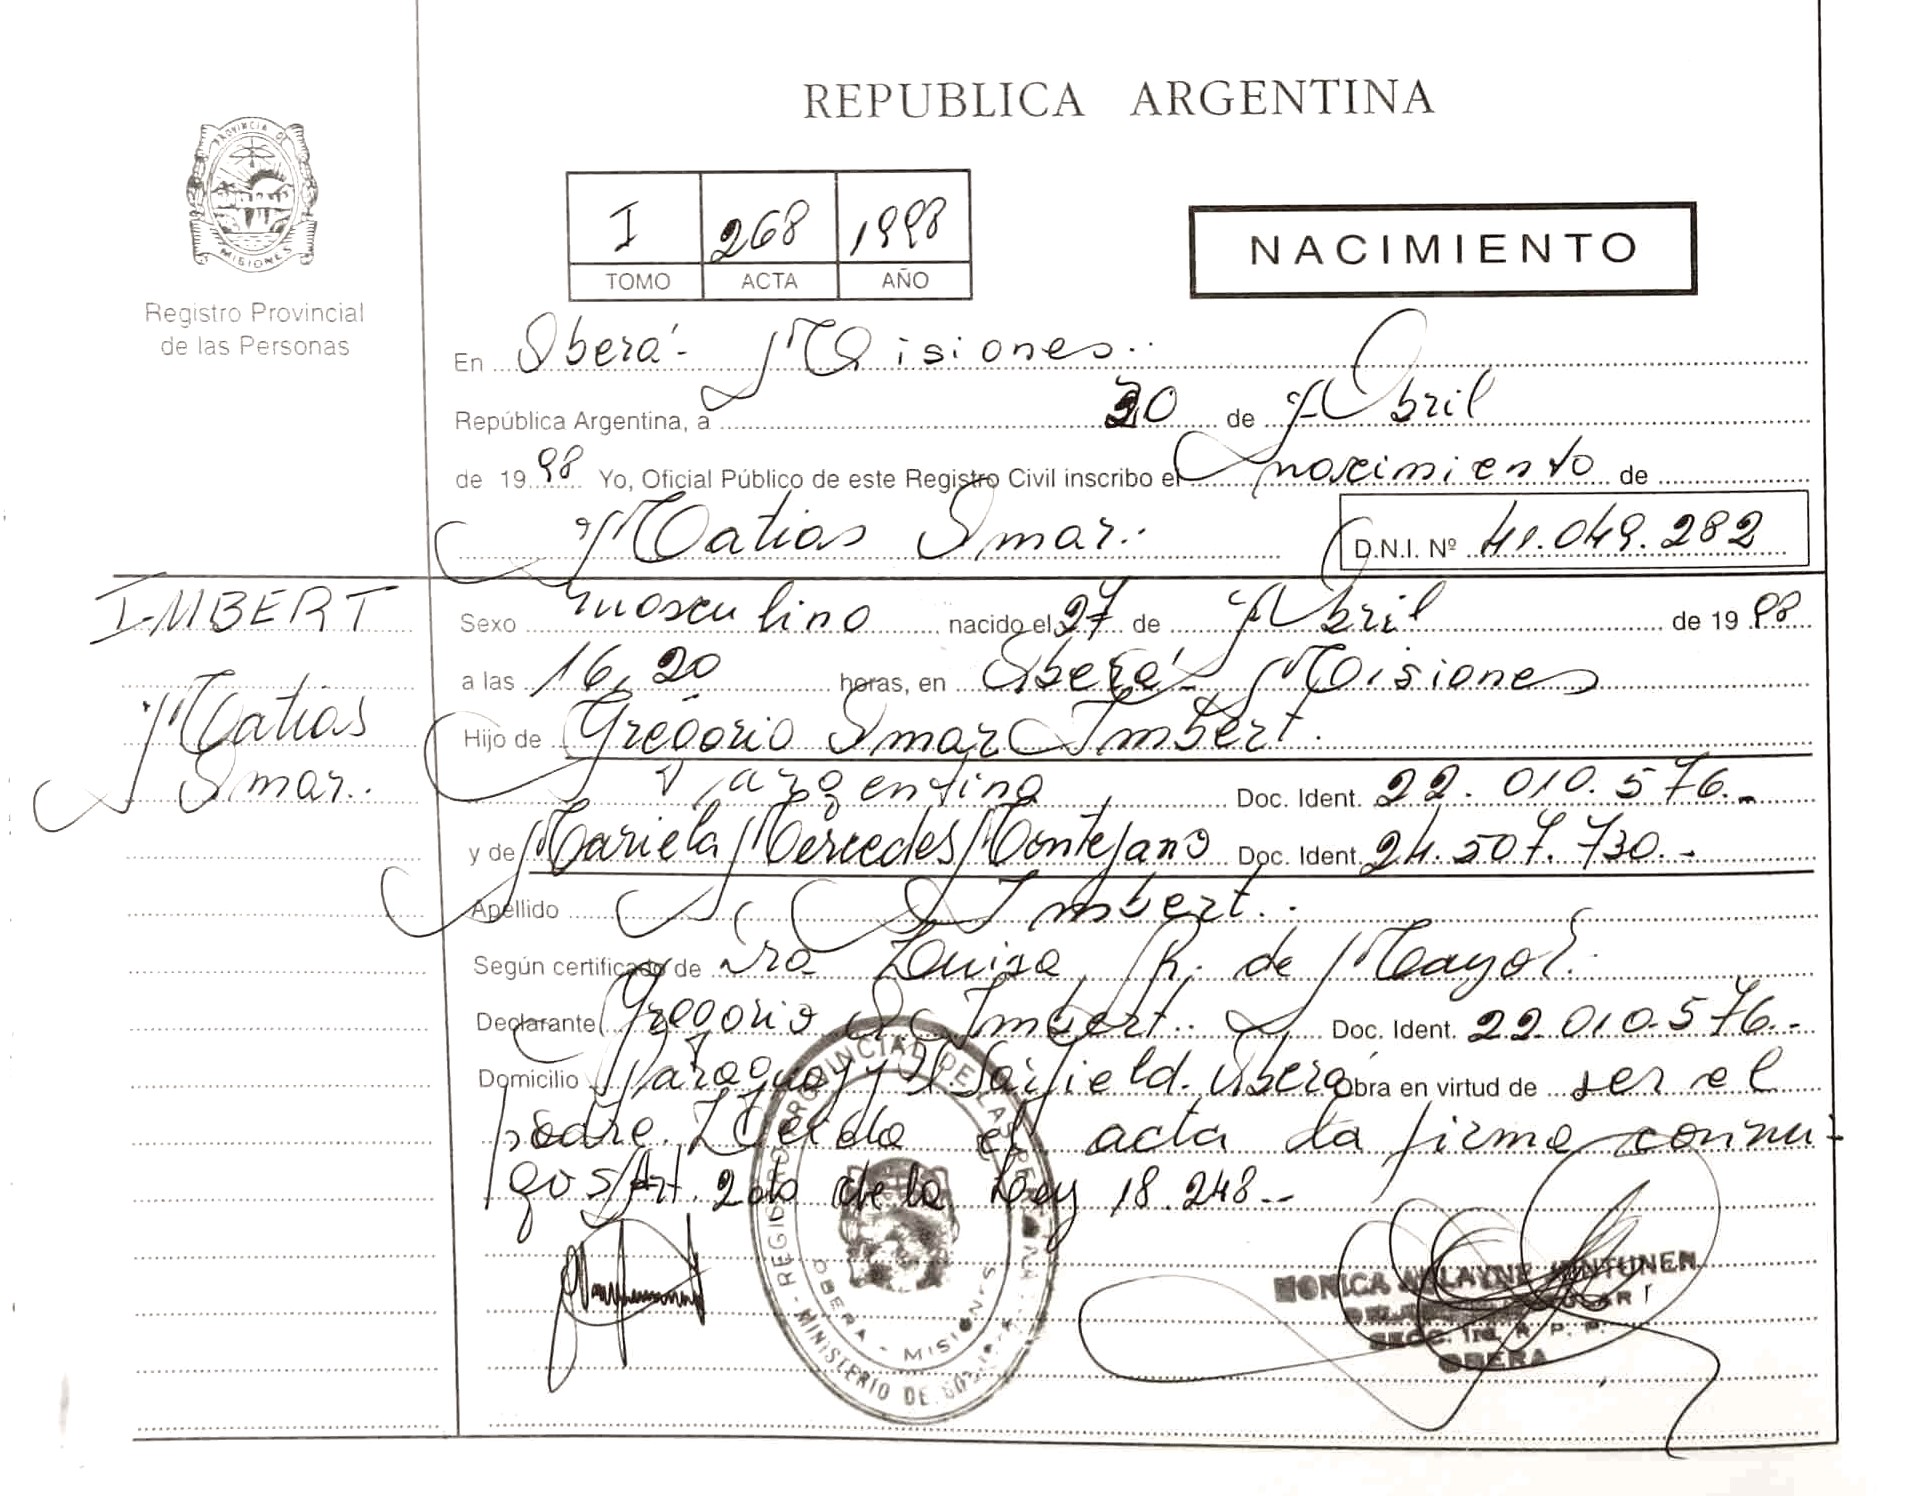 REPUBLICA ARGENTINA
PROVINCIA DE
MISIONES
Registro Provincial
de las Personas
I 268 1998
TOMO ACTA AÑO
NACIMIENTO
En Oberá - Misiones..
República Argentina, a 30 de Abril
de 1998 Yo, Oficial Público de este Registro Civil inscribo el nacimiento de
Matias Omar.. D.N.I. Nº 41.049.282
IMBERT
Matias
Omar..
Sexo masculino nacido el 27 de Abril de 1998
a las 16,20 horas, en Oberá - Misiones
Hijo de Gregorio Omar Imbert.
argentina Doc. Ident. 22.010.576.-
y de Mariela Mercedes Montejano Doc. Ident. 24.507.730.-
Apellido Imbert..
Según certificado de Dra Luisa R. de Mayol.
Declarante Gregorio O. Imbert.. Doc. Ident. 22.010.576.-
Domicilio Paraguay y V. Sarfield. Oberá Obra en virtud de ser el
padre. Leida el acta la firma conmi-
go S/Art. 2do de la Ley 18.248.-
REGISTRO PROVINCIAL DE LAS PERSONAS
MINISTERIO DE
OBERA - MISIONES
MONICA
SECC. 1ra. R. P. P.
OBERA